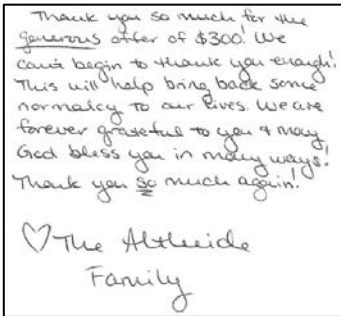 Thank you so much for the
generous offer of $300! We
can't begin to thank you enough!
This will help bring back some
normalcy to our lives. We are
forever grateful to you & may
God bless you in many ways!
Thank you so much again!
♡ The Altheide
Family